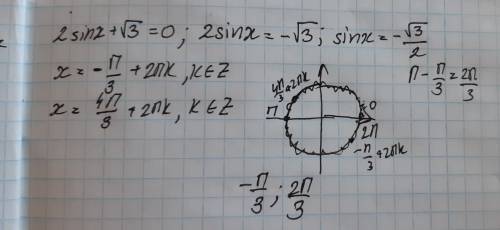 2sinx + √3 = 0; 2sinx = -√3; sinx = -√3/2
x = -π/3 + 2πk, k∈Z
π - π/3 = 2π/3
x = 4π/3 + 2πk, k∈Z
4π/3 + 2πk
π
0
2π
-π/3 + 2πk
-π/3; 2π/3